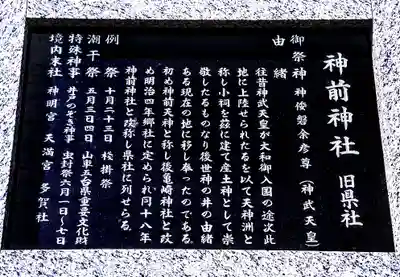 神前神社 旧県社
御祭神 神倭磐余彦尊（神武天皇）
由緒
往昔神武天皇が大和御入国の途次此
地に上陸せられたるを以て天神洲と
称し小祠を茲に建て産土神として崇
敬したるものなり後世神の井の由緒
ある現在の地に移し奉ったのである
初め神前天神と称し後亀崎神社と改
め明治四年郷社に定められ同十八年
神前神社と改称し県社に列せらる。
例祭 十月二十三日 桟掛祭
潮干祭 五月三日四日 山車五台県重要文化財
特殊神事 井戸のぞき神事 虫封祭六月一日～七日
境内末社 神明宮 天満宮 多賀社